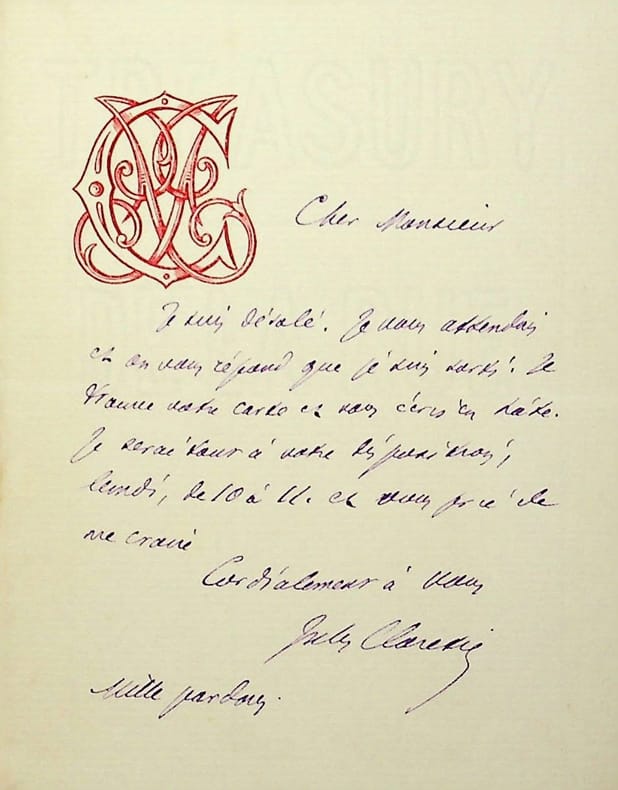 Cher Monsieur
Je suis désolé. Je vous attendais
et on vous répond que je suis sorti! Je
trouve votre carte et vous écris en hâte.
Je serai tout à votre disposition,
lundi, de 10 à 11. et vous prie de
me croire
Cordialement à vous
Jules Claretie
Mille pardons.
TREASURY